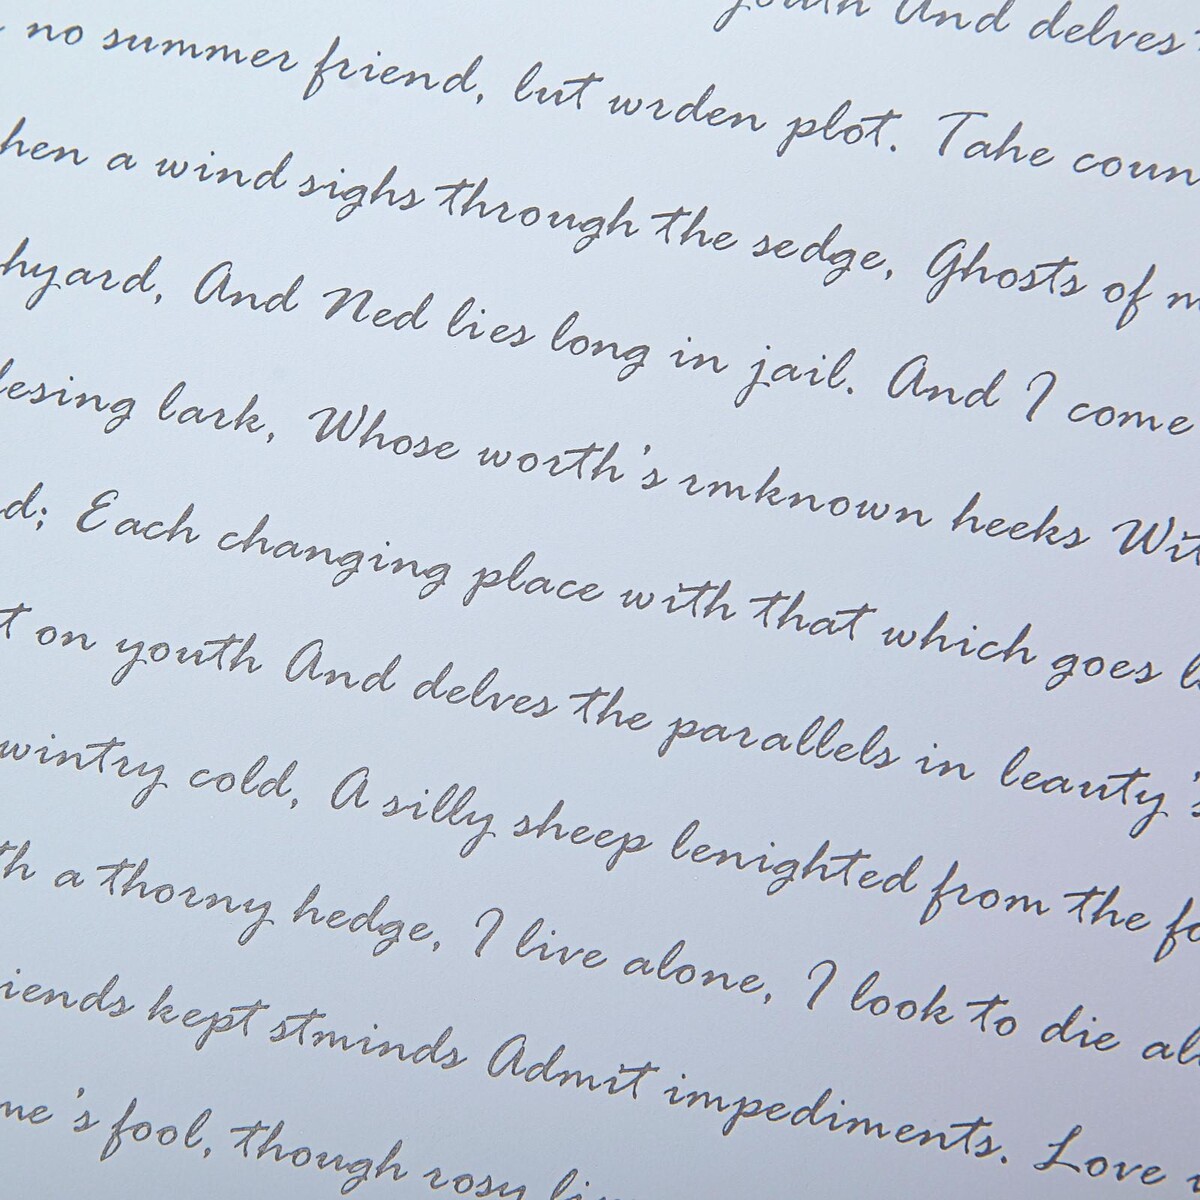 youth And delves
no summer friend, but wrden plot. Tahe coun
hen a wind sighs through the sedge, Ghosts of m
hyard, And Ned lies long in jail. And I come
lesing lark, Whose worth's rmknown heeks Wit
d; Each changing place with that which goes b
t on youth And delves the parallels in beauty's
wintry cold, A silly sheep benighted from the fo
th a thorny hedge, I live alone, I look to die al
iends kept stminds Admit impediments. Love
me's fool, though rosy li